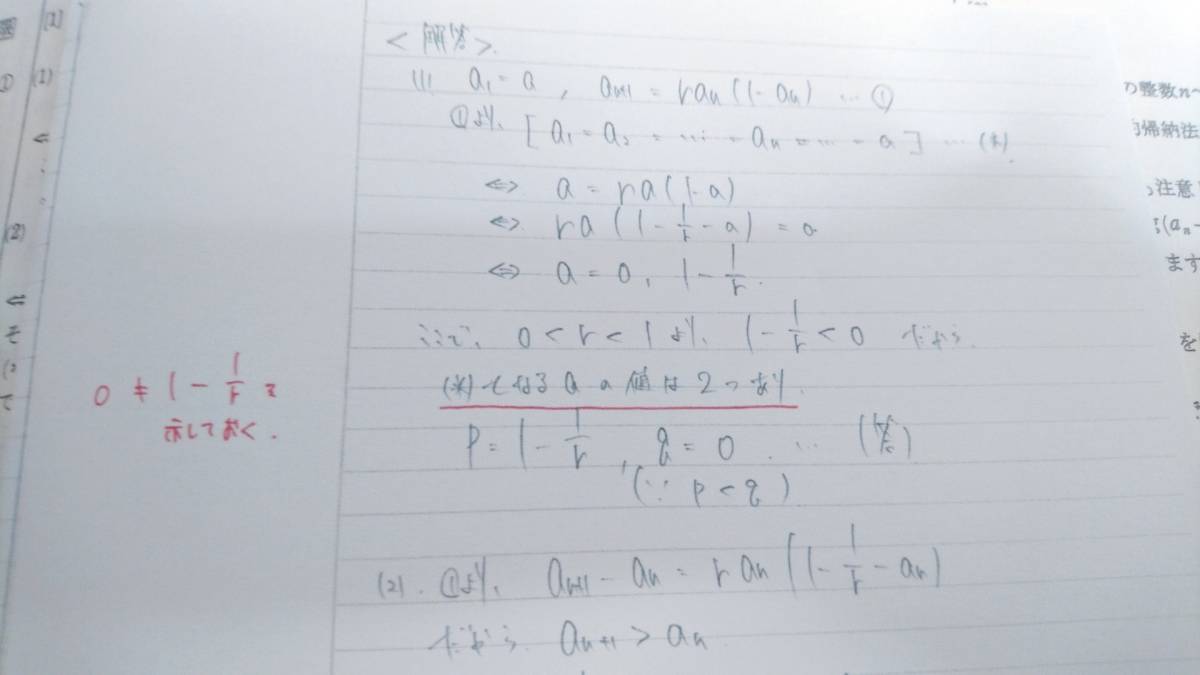 <解答>.
(1) a₁ = a , aₙ₊₁ = raₙ(1-aₙ) … ①
①より、[a₁ = a₂ = …… = aₙ = … = a] … (*).
⇔ a = ra(1-a)
⇔ ra(1 - 1/r - a) = 0
⇔ a = 0, 1 - 1/r.
ここで、0 < r < 1 より、1 - 1/r < 0 だから
(*)となるaの値は2つあり.
0 ≠ 1 - 1/r を
示しておく.
p = 1 - 1/r , q = 0 . … (答)
(∵ p < q)
(2). ①より、aₙ₊₁ - aₙ = raₙ(1 - 1/r - aₙ)
だから aₙ₊₁ > aₙ
[1]
① (1)
⇐
(2)
⇐
そ
て
の整数n〜
帰納法
注意
(aₙ -
ます
を